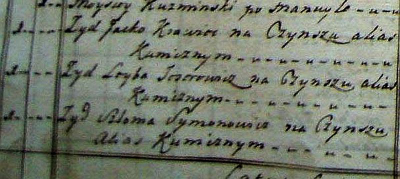 Moyszy Kuzminski po Manuyle
Zyd Jacko Krawiec na Czynszu alias
Kumicznym
Zyd Leyba Jozorowicz na Czynszu alias
Kumicznym
Zyd Szloma Symonowicz na Czynszu
Alias Kumicznym